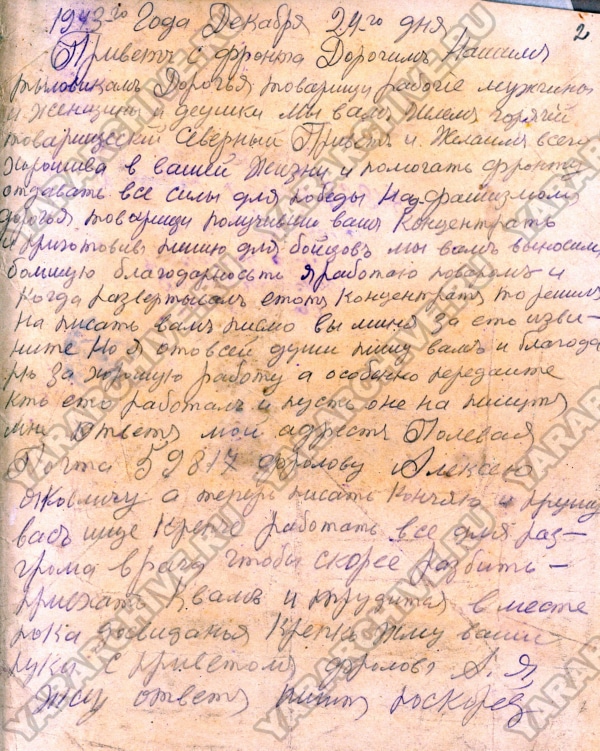 1943-го Года Декабря 24-го дня
2
Приветъ с фронта Дорогимъ Нашимъ
тыловикамъ Дорогъя товарищи рабочие мужчины
и женщины и деушки мы вамъ шлемъ горячий
товарищеский Северный Приветъ и Желаимъ всего
хорошива в вашей Жизни и помогать фронту
отдавать все силы для победы Над фашизмомъ
дорогъя товарищи получивши вашъ Концентратъ
и приготовивъ пищю для бойцовъ мы вамъ выносим
большую благодарность я работаю поваромъ и
когда развертывалъ етотъ Концентратъ то решилъ
На писать вамъ письмо вы мине за ето изви-
ните Но я отовсей души пишу вамъ и благода
рю За хорошую работу а особенно передайте
кто ето работалъ и пусть оне на пишутъ
мне Ответъ мой адрестъ Полевая
Почта 59817 Фролову Алексею
Яковличу а теперь писать Кончяю и прошу
васъ ище Крепче работать все для раз-
грома врага чтобы скорее разбить
приехать Квамъ и трудится в месте
пока досвиданья Крепко Жму ваши
рука с приветомъ Фроловъ А. Я.
Жду ответъ поскорей